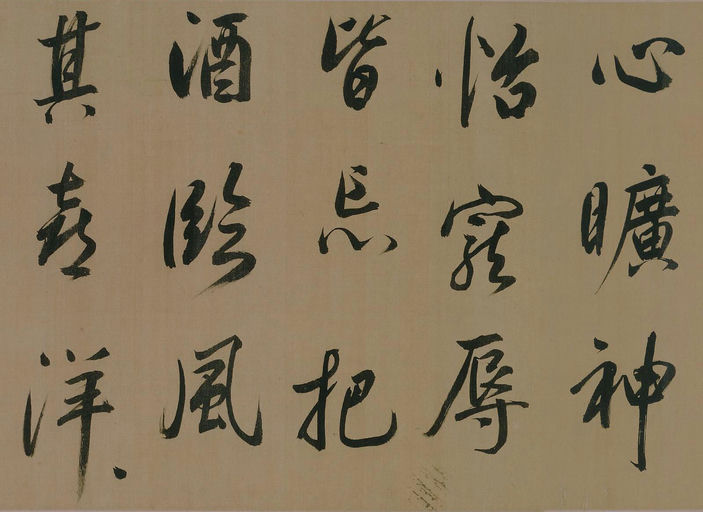 心曠神
怡寵辱
皆忘把
酒臨風
其喜洋、